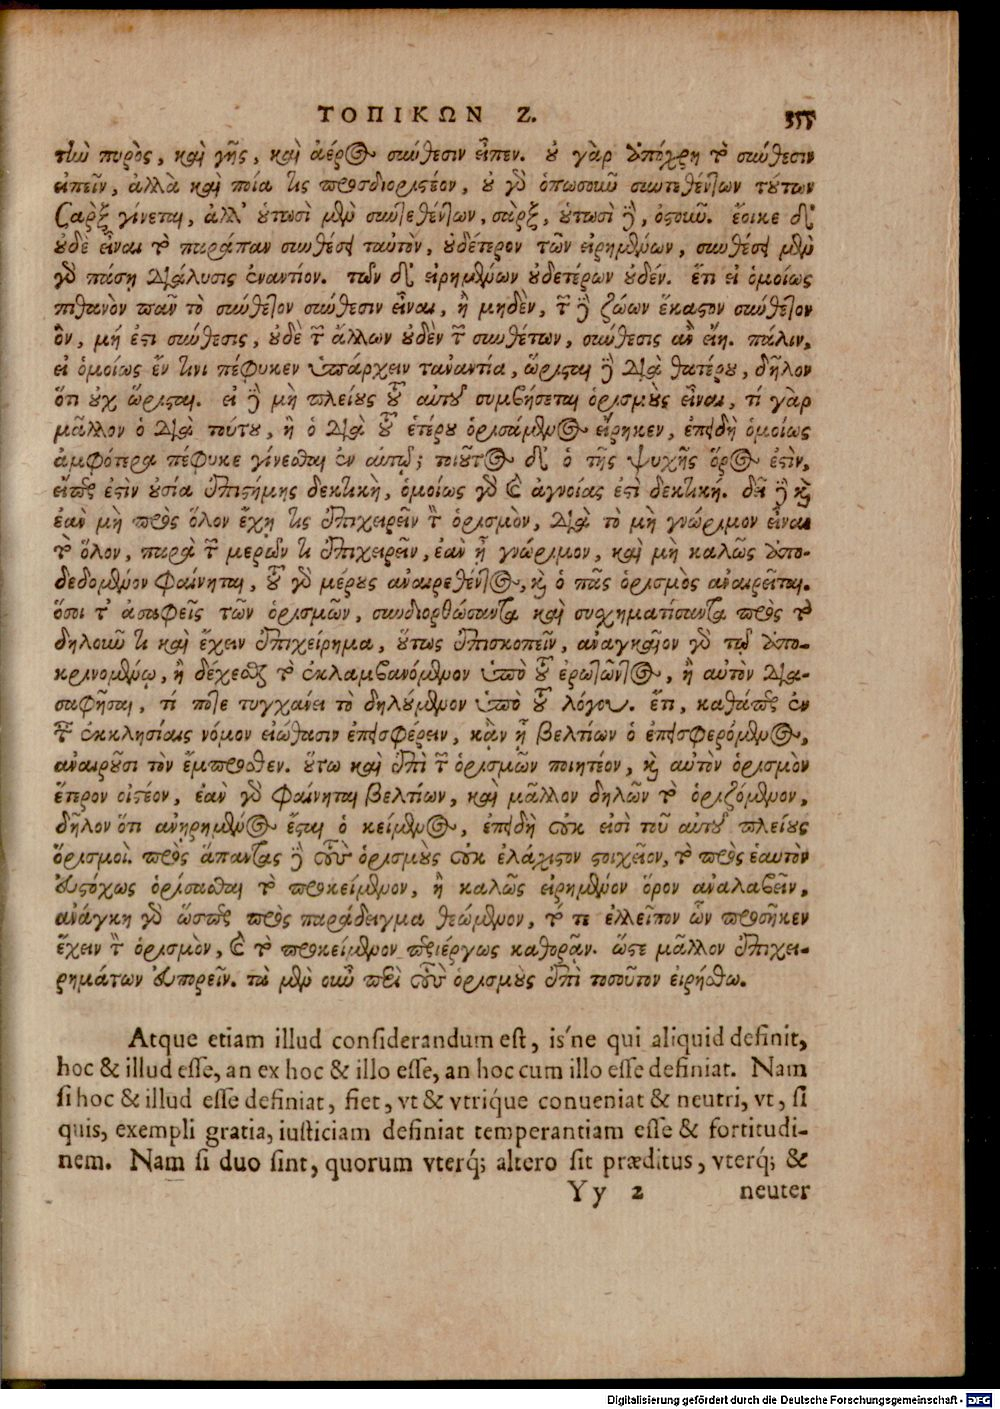 ΤΟΠΙΚΩΝ Ζ. 355
τὴν πυρὸς, καὶ γῆς, καὶ ἀέρος σύνθεσιν εἶπεν. οὐ γὰρ ἀπόχρη τὸ σύνθεσιν
εἰπεῖν, ἀλλὰ καὶ ποία τις προσδιοριστέον, οὐ γὰρ ὁπωσοῦν συντεθέντων τούτων
σὰρξ γίνεται, ἀλλ' οὑτωσὶ μὲν συντεθέντων, σὰρξ, οὑτωσὶ δὲ, ὀστοῦν. ἔοικε δ'
οὐδὲ εἶναι τὸ παράπαν συνθέσει ταὐτὸν, οὐδέτερον τῶν εἰρημένων, συνθέσει μὲν
γὰρ πάσῃ διάλυσις ἐναντίον. τῶν δ' εἰρημένων οὐδετέρων οὐδέν. ἔτι εἰ ὁμοίως
πιθανὸν πᾶν τὸ σύνθετον σύνθεσιν εἶναι, ἢ μηδὲν, τῶν δὲ ζώων ἕκαστον σύνθετον
ὂν, μή ἐστι σύνθεσις, οὐδὲ τῶν ἄλλων οὐδὲν τῶν συνθέτων, σύνθεσις ἂν εἴη. πάλιν,
εἰ ὁμοίως ἔν τινι πέφυκεν ὑπάρχειν τἀναντία, ὥρισται δὲ διὰ θατέρου, δῆλον
ὅτι οὐχ ὥρισται. εἰ δὲ μὴ πλείους τοῦ αὐτοῦ συμβήσεται ὁρισμοὺς εἶναι, τί γὰρ
μᾶλλον ὁ διὰ τούτου, ἢ ὁ διὰ τοῦ ἑτέρου ὁρισάμενος εἴρηκεν, ἐπειδὴ ὁμοίως
ἀμφότερα πέφυκε γίνεσθαι ἐν αὐτῷ; τοιοῦτος δ' ὁ τῆς ψυχῆς ὅρος ἐστὶν,
εἴπερ ἐστὶν οὐσία ἐπιστήμης δεκτικὴ, ὁμοίως γὰρ καὶ ἀγνοίας ἐστὶ δεκτική. δεῖ δὲ καὶ
ἐὰν μὴ πρὸς ὅλον ἔχῃ τις ἐπιχειρεῖν τὸν ὁρισμὸν, διὰ τὸ μὴ γνώριμον εἶναι
τὸ ὅλον, παρὰ τῶν μερῶν τι ἐπιχειρεῖν, ἐὰν ᾖ γνώριμον, καὶ μὴ καλῶς ἀπο-
δεδομένον φαίνηται, τοῦ γὰρ μέρους ἀναιρεθέντος, καὶ ὁ πᾶς ὁρισμὸς ἀναιρεῖται.
ὅσοι τ' ἀσαφεῖς τῶν ὁρισμῶν, συνδιορθώσαντα καὶ συσχηματίσαντα πρὸς τὸ
δηλοῦν τι καὶ ἔχειν ἐπιχείρημα, οὕτως ἐπισκοπεῖν, ἀναγκαῖον γὰρ τῷ ἀπο-
κρινομένῳ, ἢ δέχεσθαι τὸ ἐκλαμβανόμενον ὑπὸ τοῦ ἐρωτῶντος, ἢ αὐτὸν δια-
σαφῆσαι, τί ποτε τυγχάνει τὸ δηλούμενον ὑπὸ τοῦ λόγου. ἔτι, καθάπερ ἐν
ταῖς ἐκκλησίαις νόμον εἰώθασιν ἐπεισφέρειν, κἂν ᾖ βελτίων ὁ ἐπεισφερόμενος,
ἀναιροῦσι τὸν ἔμπροσθεν. οὕτω καὶ ἐπὶ τῶν ὁρισμῶν ποιητέον, καὶ αὐτὸν ὁρισμὸν
ἕτερον οἰστέον, ἐὰν γὰρ φαίνηται βελτίων, καὶ μᾶλλον δηλῶν τὸ ὁριζόμενον,
δῆλον ὅτι ἀνῃρημένος ἔσται ὁ κείμενος, ἐπειδὴ οὐκ εἰσὶ τοῦ αὐτοῦ πλείους
ὁρισμοί. πρὸς ἅπαντας δὲ τοὺς ὁρισμοὺς οὐκ ἐλάχιστον στοιχεῖον, τὸ πρὸς ἑαυτὸν
εὐστόχως ὁρίσασθαι τὸ προκείμενον, ἢ καλῶς εἰρημένον ὅρον ἀναλαβεῖν,
ἀνάγκη γὰρ ὥσπερ πρὸς παράδειγμα θεώμενον, τό τε ἐλλεῖπον ὧν προσῆκεν
ἔχειν τὸν ὁρισμὸν, καὶ τὸ προκείμενον περιέργως καθορᾶν. ὥστε μᾶλλον ἐπιχει-
ρημάτων εὐπορεῖν. τὰ μὲν οὖν περὶ τοὺς ὁρισμοὺς ἐπὶ τοσοῦτον εἰρήσθω.
Atque etiam illud considerandum est, is'ne qui aliquid definit,
hoc & illud esse, an ex hoc & illo esse, an hoc cum illo esse definiat. Nam
si hoc & illud esse definiat, fiet, vt & vtrique conueniat & neutri, vt, si
quis, exempli gratia, iusticiam definiat temperantiam esse & fortitudi-
nem. Nam si duo sint, quorum vterq; altero sit præditus, vterq; &
Yy 2 neuter
Digitalisierung gefördert durch die Deutsche Forschungsgemeinschaft - DFG